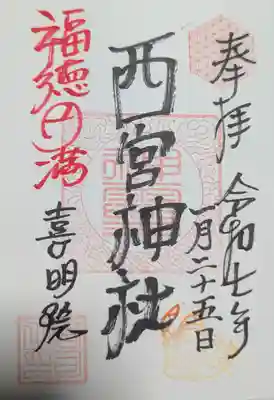 奉拝
令和七年
一月二十五日
西宮神社
福徳円満
喜明院